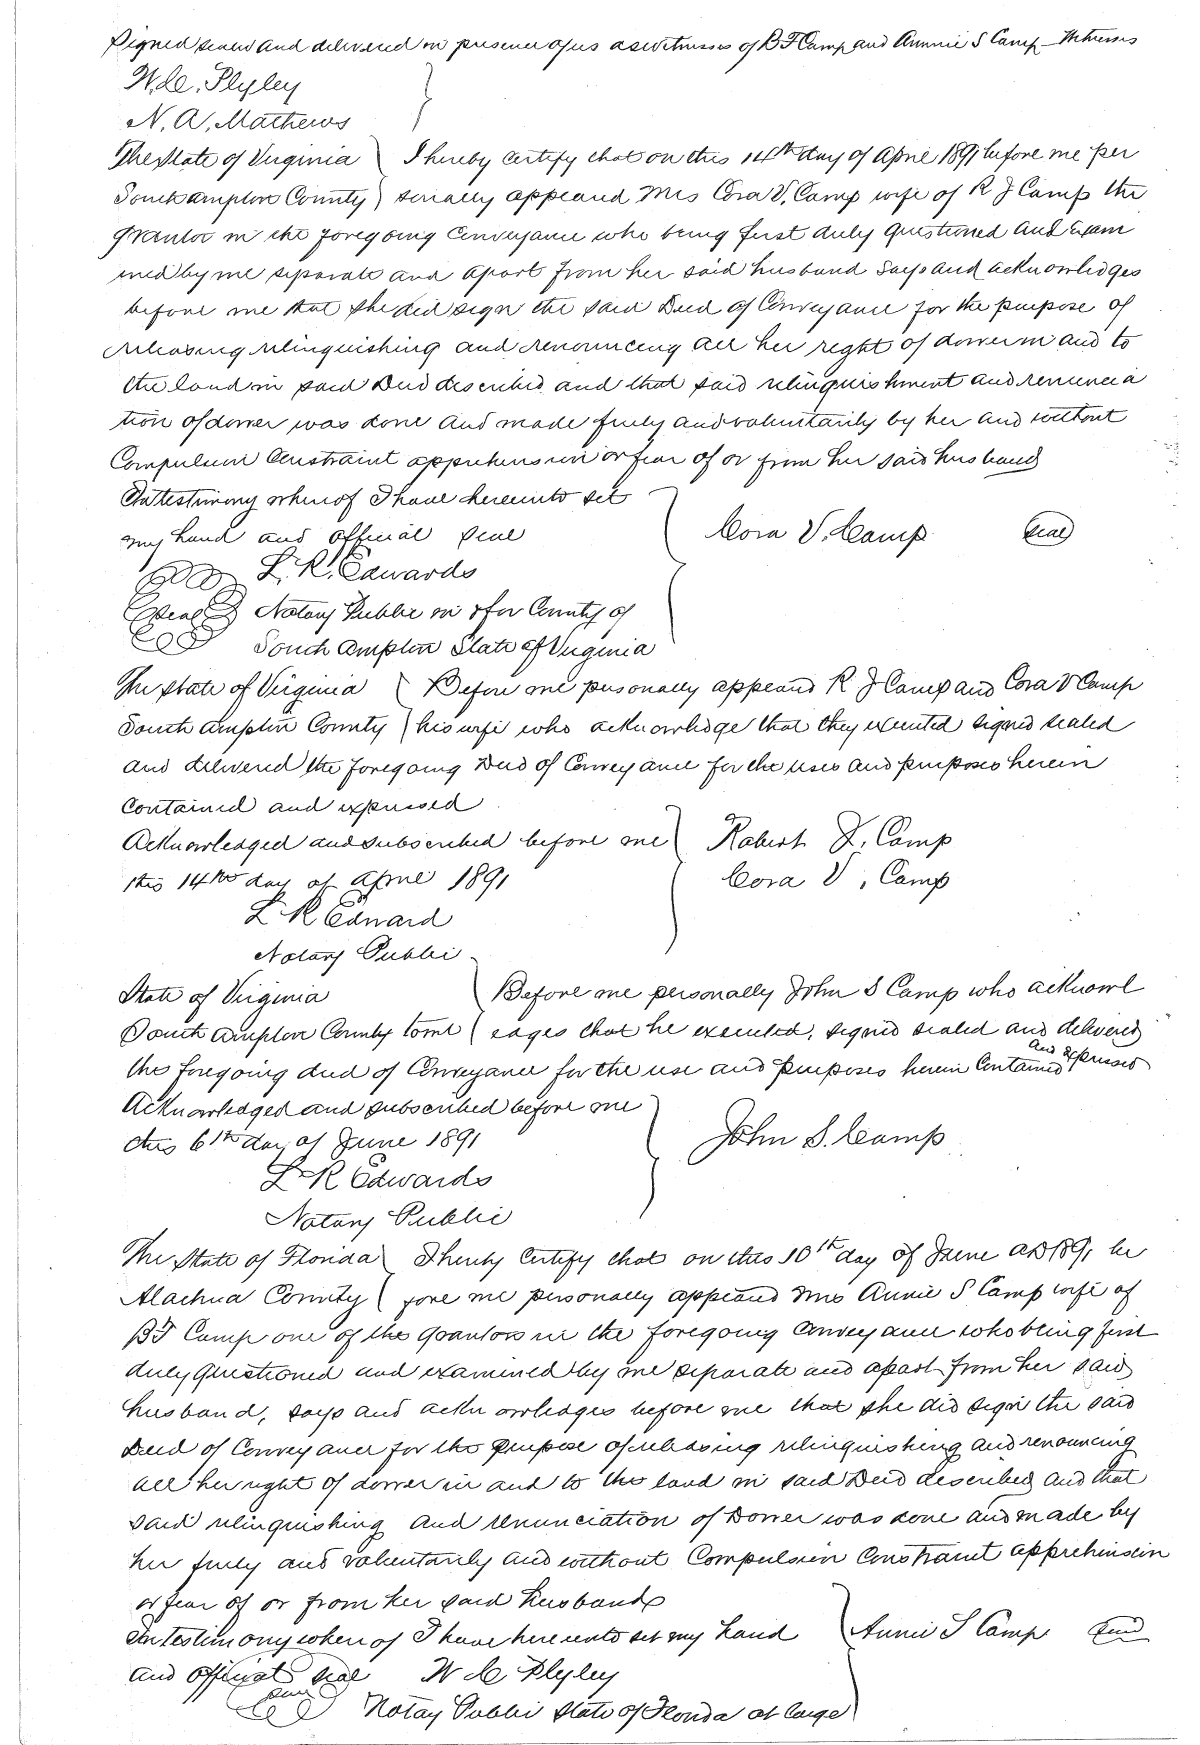 Signed sealed and delivered in presence of us as witnesses of B F Camp and Annie S Camp - Witnesses
W. C. Plyley
N. A. Mathews
The State of Virginia ) I hereby certify that on this 14th day of April 1891 before me per
Southampton County ) sonally appeared Mrs Cora V. Camp wife of R J Camp the
grantor in the foregoing Conveyance who being first duly questioned and Exam
ined by me separate and apart from her said husband Says and acknowledges
before me that she did sign the said Deed of Conveyance for the purpose of
releasing relinquishing and renouncing all her right of dower in and to
the land in said Deed described and that said relinquishment and renuncia
tion of dower was done and made freely and voluntarily by her and without
Compulsion Constraint apprehension or fear of or from her said husband
In testimony whereof I have hereunto set
my hand and official seal
Cora V. Camp (Seal)
L. R. Edwards
(Seal) Notary Public in & for County of
South ampton State of Virginia
The State of Virginia ( Before me personally appeared R J Camp and Cora V Camp
South ampton County ) his wife who acknowledge that they executed signed sealed
and delivered the foregoing Deed of Conveyance for the uses and purposes herein
Contained and expressed
Acknowledged and subscribed before me ) Robert J. Camp
this 14th day of April 1891 Cora V. Camp
L R Edward
Notary Public
State of Virginia ( Before me personally John S Camp who acknowl
South ampton County to wit ( edges that he executed, signed sealed and delivered
this foregoing deed of Conveyance for the use and purposes herein Contained and expressed
Acknowledged and subscribed before me
this 6th day of June 1891 John S. Camp
L R Edwards
Notary Public
The State of Florida ) I hereby Certify that on this 10th day of June AD 1891 be
Alachua County ( fore me personally appeared Mrs Annie S Camp wife of
B F Camp one of the Grantors in the foregoing Conveyance who being first
duly questioned and examined by me separate and apart from her said
husband, says and acknowledges before me that she did sign the said
Deed of Conveyance for the purpose of releasing relinquishing and renouncing
all her right of dower in and to the land in said Deed described and that
said relinquishing and renunciation of Dower was done and made by
her freely and voluntarily and without Compulsion Constraint apprehension
or fear of or from her said husband
In testimony whereof I have hereunto set my hand ) Annie S Camp Seal
and official seal W C Plyley
(Seal) Notary Public State of Florida at large